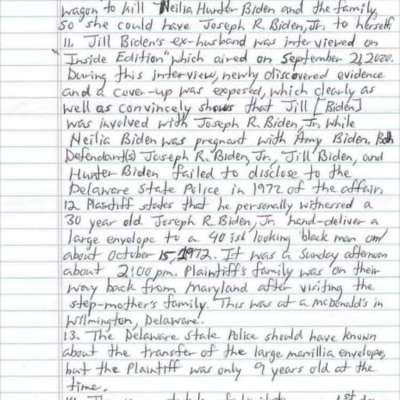 wagon to kill Neilia Hunter Biden and the family,
so she could have Joseph R. Biden, Jr. to herself.
11. Jill Biden's ex-husband was interviewed on
"Inside Edition" which aired on September 21, 2020.
During this interview, newly discovered evidence
and a cover-up was exposed, which clearly as
well as convincely shows that Jill [Biden]
was involved with Joseph R. Biden, Jr. while
Neilia Biden was pregnant with Amy Biden. Both
Defendant(s) Joseph R. Biden, Jr., Jill Biden, and
Hunter Biden failed to disclose to the
Delaware State Police in 1972 of the affair.
12. Plaintiff states that he personally witnessed a
30 year old Joseph R. Biden, Jr. hand-deliver a
large envelope to a 40 ish looking black man on/
about October 15, 1972. It was a Sunday afternoon
about 2:00 pm. Plaintiff's family was on their
way back from Maryland after visiting the
step-mother's family. This was at a McDonald's in
Wilmington, Delaware.
13. The Delaware State Police should have known
about the transfer of the large manillia envelope,
but the Plaintiff was only 9 years old at the
time.